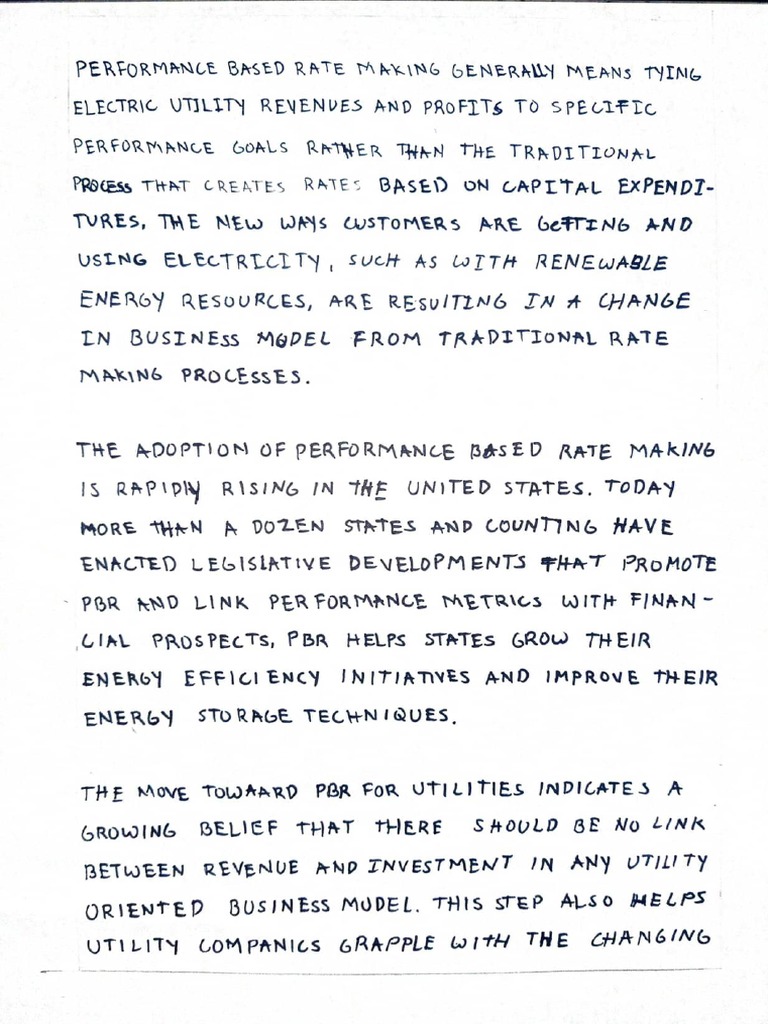 PERFORMANCE BASED RATE MAKING GENERALLY MEANS TYING
ELECTRIC UTILITY REVENUES AND PROFITS TO SPECIFIC
PERFORMANCE GOALS RATHER THAN THE TRADITIONAL
PROCESS THAT CREATES RATES BASED ON CAPITAL EXPENDI-
TURES, THE NEW WAYS CUSTOMERS ARE GETTING AND
USING ELECTRICITY, SUCH AS WITH RENEWABLE
ENERGY RESOURCES, ARE RESULTING IN A CHANGE
IN BUSINESS MODEL FROM TRADITIONAL RATE
MAKING PROCESSES.
THE ADOPTION OF PERFORMANCE BASED RATE MAKING
IS RAPIDLY RISING IN THE UNITED STATES. TODAY
MORE THAN A DOZEN STATES AND COUNTING HAVE
ENACTED LEGISLATIVE DEVELOPMENTS THAT PROMOTE
PBR AND LINK PERFORMANCE METRICS WITH FINAN-
CIAL PROSPECTS, PBR HELPS STATES GROW THEIR
ENERGY EFFICIENCY INITIATIVES AND IMPROVE THEIR
ENERGY STORAGE TECHNIQUES.
THE MOVE TOWAARD PBR FOR UTILITIES INDICATES A
GROWING BELIEF THAT THERE SHOULD BE NO LINK
BETWEEN REVENUE AND INVESTMENT IN ANY UTILITY
ORIENTED BUSINESS MODEL. THIS STEP ALSO HELPS
UTILITY COMPANICS GRAPPLE WITH THE CHANGING